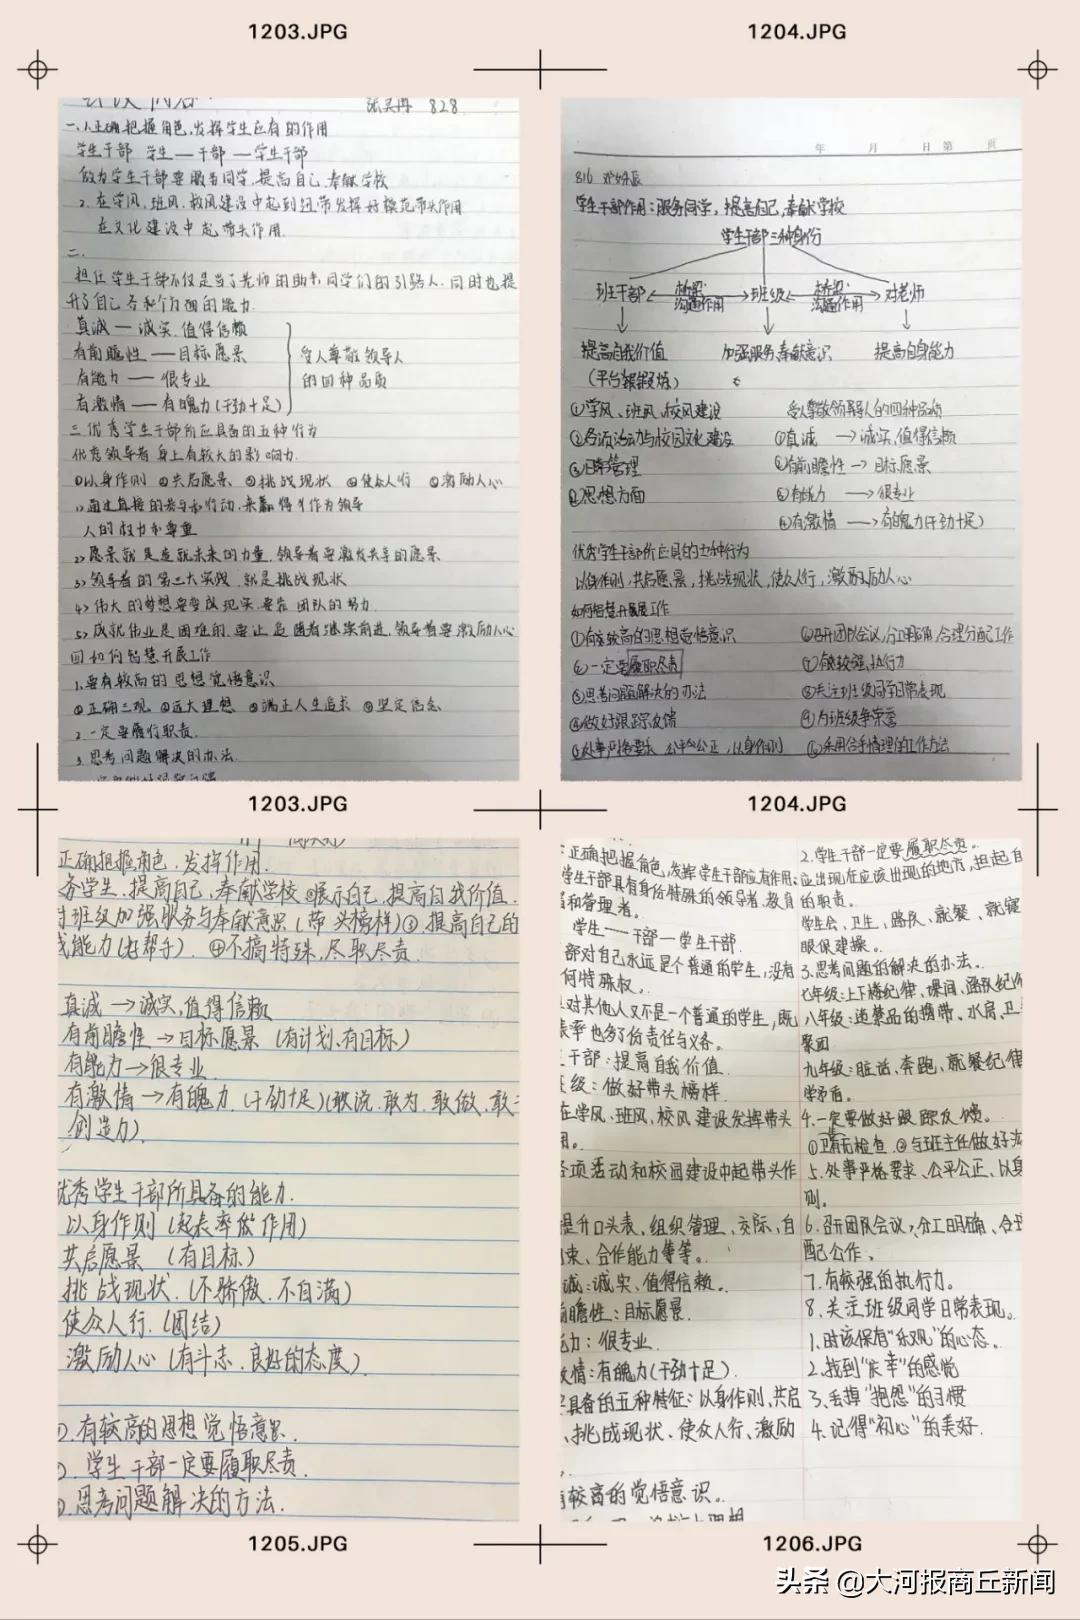 1203.JPG
1204.JPG
828
一、1.正确把握角色,发挥学生应有的作用
学生干部 学生—干部—学生干部
做为学生干部要服务同学,提高自己,奉献学校
2.在学风、班风、校风建设中起到纽带发挥好模范带头作用
在文化建设中起带头作用.
二.
担任学生干部不仅是当了老师的助手,同学们的引路人.同时也提
升了自己各个方面的能力.
真诚—诚实,值得信赖
有前瞻性—目标愿景
有能力—很专业
有激情—有魄力(干劲十足)
受人尊敬领导人
的四种品质
三.优秀学生干部所应具备的五种行为
优秀领导者身上有较大的影响力.
①以身作则 ②共启愿景 ③挑战现状 ④使众人行 ⑤激励人心
1>通过直接的参与和行动,来赢得作为领导
人的权力和尊重
2>愿景就是造就未来的力量,领导者要激发共享的愿景
3>领导者的第三大实践,就是挑战现状
4>伟大的梦想要变成现实,要靠团队的努力.
5>成就伟业是困难的,要让追随者继续前进,领导者要激励人心
四.如何智慧开展工作
1.要有较高的思想觉悟意识
①正确三观 ②远大理想 ③端正人生追求 ④坚定信念
2.一定要履行职责.
3.思考问题解决的办法.
年 月 日 第 页
816
学生干部作用:服务同学,提高自己,奉献学校
学生干部三种身份
班干部 桥梁 沟通作用 班级 桥梁 沟通作用 对老师
提高自我价值 加强服务,奉献意识 提高自身能力
(平台锻炼)
①学风、班风、校风建设 受人尊敬领导人的四种品质
②各项活动与校园文化建设 ①真诚→诚实,值得信赖
③日常管理 ②有前瞻性→目标愿景
④思想方面 ③有能力→很专业
④有激情→有魄力(干劲十足)
优秀学生干部所应具的五种行为
以身作则,共启愿景,挑战现状,使众人行,激励人心
如何智慧开展工作
①有较高的思想觉悟意识 ⑥召开团队会议,分工明确,合理分配工作
②一定要履职尽责 ⑦有较强执行力
③思考问题解决的办法 ⑧关注班级同学日常表现
④做好跟踪反馈 ⑨为班级争荣誉
⑤处事严格要求 公平公正,以身作则 ⑩采用合乎情理的工作方法
1203.JPG
1204.JPG
正确把握角色,发挥作用.
务学生.提高自己,奉献学校 ①展示自己,提高自我价值.
对班级加强服务与奉献意识(带头榜样)③.提高自己的
能力(好帮手). ④不搞特殊,尽职尽责.
真诚→诚实,值得信赖
有前瞻性→目标愿景(有计划,有目标)
有能力→很专业
有激情→有魄力.(干劲十足)(敢说,敢为,敢做,敢
创造力).
优秀学生干部所具备的能力.
以身作则(起表率做作用)
共启愿景(有目标)
挑战现状.(不骄傲.不自满)
使众人行.(团结)
激励人心(有斗志.良好的态度).
.有较高的思想觉悟意识.
.学生干部一定要履职尽责.
.思考问题解决的方法.
正确把握角色,发挥学生干部应有作用:
学生干部具有身份特殊的领导者,教育
和管理者.
学生——干部—学生干部.
部对自己永远是个普通的学生,没有
何特殊权。
对其他人又不是一个普通的学生,既
表率也多了份责任与义务。
干部:提高自我价值.
级:做好带头榜样.
在学风、班风、校风建设发挥带头
用。
各项活动和校园建设中起带头作
提升口头表、组织管理、交际、自
束、合作能力等等。
诚:诚实、值得信赖.
前瞻性:目标愿景.
能力:很专业.
激情:有魄力(干劲十足).
具备的五种特征:以身作则,共启
、挑战现状、使众人行、激励
有较高的觉悟意识。
2.学生干部一定要履职尽责。
应出现在应该出现的地方,担起自
的职责。
学生会、卫生、路队、就餐、就寝
眼保健操。
3.思考问题的解决的办法。
七年级:上下楼纪律、课间、路队纪律
八年级:违禁品的携带、水房、卫
聚团
九年级:脏话、奔跑、就餐纪律
学矛盾。
4.一定要做好跟踪反馈。
检查.②与班主任做好沟
5.处事严格要求、公平公正、以身
则.
6.召开团队会议,分工明确、合理
配工作、
7.有较强的执行力。
8.关注班级同学日常表现。
1.时该保有“乐观”的心态。
2.找到“庆幸”的感觉
3.丢掉“抱怨”的习惯
4.记得“初心”的美好.
1205.JPG
1206.JPG
头条 @大河报商丘新闻